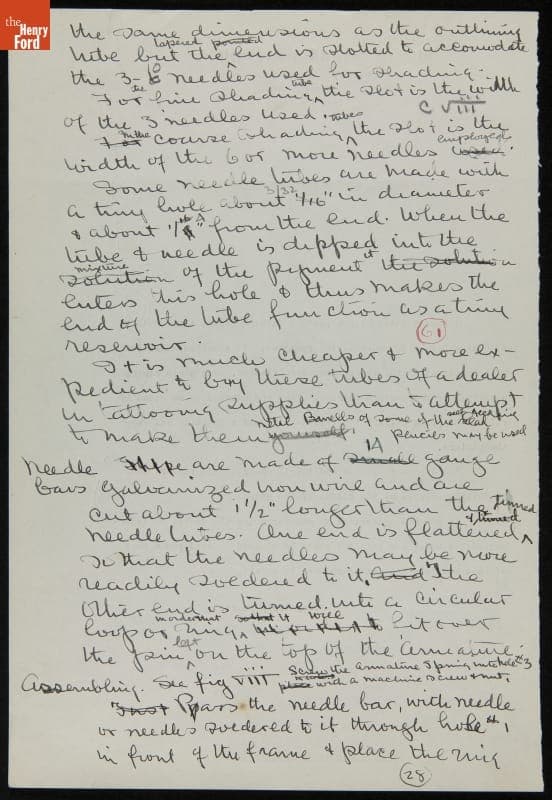 the Henry Ford
the same dimensions as the outlining
tapered pointed
tube but the end is slotted to accomodate
the 3-6 needles used for shading.
For fine shading the tube the slot is the width
of the 3 needles used. C VIII
For In the coarse shading tubes the slot is the
width of the 6 or more needles used. employed
Some needle tubes are made with
a tiny hole about 1/16" 3/32 in diameter
& about 1/8" from the end. When the
tube & needle is dipped into the
solution mixture of the pigment it the solution
enters this hole & thus makes the
end of the tube function as a tiny
reservoir.
61
It is much cheaper & more ex-
pedient to buy these tubes of a dealer
in tattooing supplies than to attempt
to make them yourself. The Barrels of some of the self feeding lead
pencils may be used
Needle are made of small 14 gauge
bars galvanized iron wire and are
cut about 1 1/2" longer than the tinned
needle tubes. One end is flattened & tinned
so that the needles may be more
readily soldered to it, and the
other end is turned into a circular
loop or ring in order that it will fit over
the pin left on the top of the armature.
Assembling. See fig VIII Screw the armature spring into hole #3
place with a machine screw & nut.
First Pass the needle bar, with needle
or needles soldered to it through hole #1
in front of the frame & place the ring
28